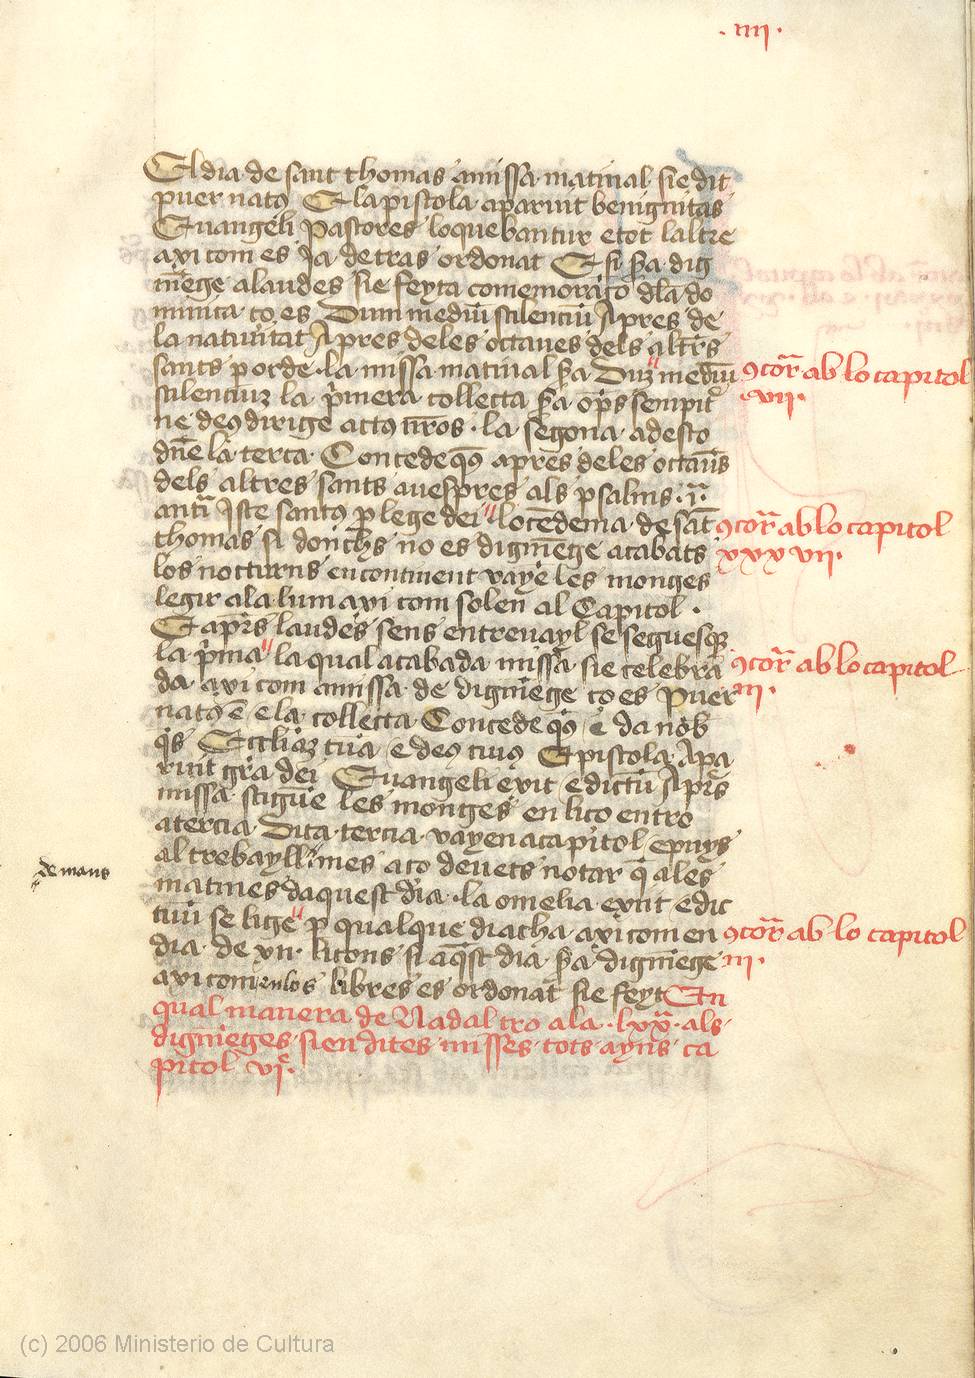 . iiii .
El dia de sant thomas a missa matinal sie dit
puer natꝰ E la pistola aparuit benignitas
Euangeli Pastores loquebantur e tot laltre
axi com es ja detras ordonat E si ẜa dig
mẽge a laudes sie feyta comemoracõ dla do
minica ço es Dum mediũ silenciũ Apres de
la natiuitat Apres de les octaues dels altr̃s
sants per orde la missa matinal ẜa Dum mediũ
silencium la pˀmera collecta ẜa op̃s sempitˀ
ne deꝰ dirige actꝰ nr̃os . la segona adesto
dñe la terca Concede q̃s apres de les octaus̃
dels altres sants a uespres als psalms . i .
antˀ Iste santꝰ ꝑ lege dei lo cẽdema de sãt
thomas si donchs no es digmẽge acabats
los nocturns en continent vayẽ les monges
legir a la lum axi com solen al Capitol .
E apr̃s laudes sens entreuayl se seguesq̃
la pˀma la qual acabada missa sie celebra
da axi com a missa de digmẽge ço es Puer
natꝰ ẽ e la collecta Concede q̃s e da nob
q̃s Ecclie tua e deꝰ cuiꝰ Epistola Apa
ruit gr̃a dei Euangeli exit edictũ Apr̃s
missa stiguẽ les monges en lico entro
a tercia Dita tercia vayen a capitol e puys
al trebayll mes aço deuets notar q̃ a les
matines daquest dia la omelia exiit edic
tum se lige ꝑ qualque diacha axi com en
dia de xii . licons si aq̃st dia ẜa digmẽge
axi com en los libres es ordonat sie feyt En
qual manera de Nadal tro a la . lxx̃ . als
digmẽges sien dites misses tots ayns ca
pitol vi .
ꝯcor̃ ab lo capitol
. vii .
ꝯcor̃ ab lo capitol
xxxvii .
ꝯcor̃ ab lo capitol
iii .
de mans
ꝯcor̃ ab lo capitol
iii .
(c) 2006 Ministerio de Cultura